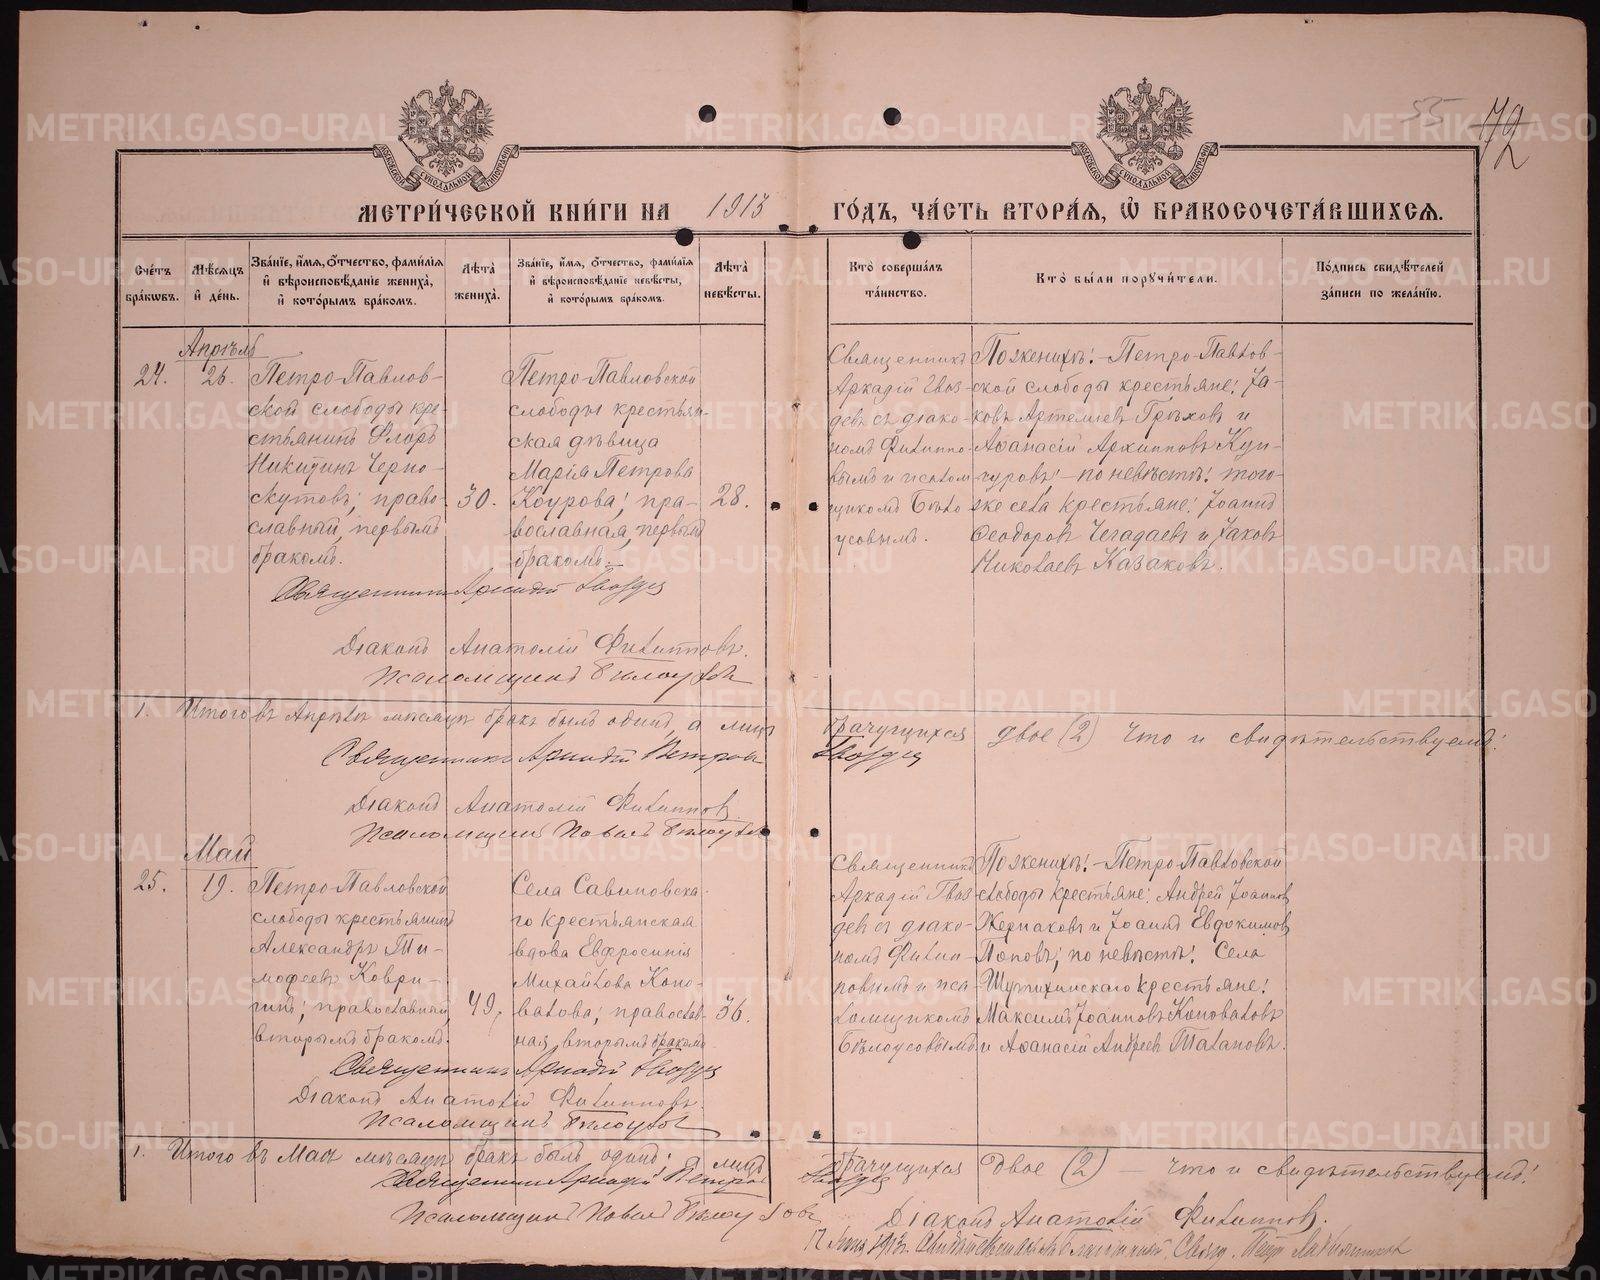 55 72
МОСКОВСКОЙ СѴНОДАЛЬНОЙ ТИПОГРАФІИ
МОСКОВСКОЙ СѴНОДАЛЬНОЙ ТИПОГРАФІИ
МЕТРИ́ЧЕСКОЙ КНИ́ГИ НА 1913 ГО́ДЪ, ЧА́СТЬ ВТОРА́Я, Ѽ БРАКОСОЧЕТА́ВШИХСЯ.
Сче́тъ бра́кѡвъ.
Мѣ́сяцъ и҆ де́нь.
Зва́нїе, и҆́мя, ѻ҆́тчество, фами́лїя
и҆ вѣроисповѣ́данїе жениха̀,
и҆ кото́рымъ бра́комъ.
Лѣ́та жениха̀.
Зва́нїе, и҆́мя, ѻ҆́тчество, фами́лїя
и҆ вѣроисповѣ́данїе невѣ́сты,
и҆ кото́рымъ бра́комъ.
Лѣ́та невѣ́сты.
Кто̀ соверша́лъ та́инство.
Кто̀ бы́ли порꙋчи́тели.
По́дпись свидѣ́телей за́писи по жела́нїю.
Апрѣль
24.
26.
Петро-Павлов-
ской слободы кре-
стьянинъ Флоръ
Никитинъ Черно-
скутовъ; право-
славный, первымъ
бракомъ.
30.
Петро-Павловской
слободы крестьян-
ская дѣвица
Марія Петрова
Коурова; пра-
вославная, первым
бракомъ.
28.
Священникъ
Аркадій Гвоз-
девъ съ діако-
номъ Филиппо-
вымъ и псалом-
щикомъ Бѣло-
усовымъ.
По женихѣ: Петро-Павлов-
ской слободы крестьяне: Іа-
ковъ Артемьевъ Грѣховъ и
Аѳанасій Архипповъ Кун-
гуровъ; по невѣстѣ: того-
же села крестьяне: Іоаннъ
Ѳеодоровъ Чегадаевъ и Іаковъ
Николаевъ Казаковъ.
Священникъ Аркадій Гвоздев
Діаконъ Анатолій Филипповъ.
Псаломщикъ Бѣлоусов
1. Итого въ Апрѣлѣ мѣсяцѣ бракъ былъ одинъ, а лицъ брачущихся двое (2) Что и свидѣтельствуемъ:
Священникъ Аркадій Петровъ Гвоздев
Діаконъ Анатолій Филиппов.
Псаломщикъ Павелъ Бѣлоусов
Май
25.
19.
Петро-Павловской
слободы крестьянинъ
Александръ Ти-
мофеевъ Коври-
гинъ; православный,
вторымъ бракомъ.
49.
Села Савиновска-
го крестьянская
вдова Евфросинія
Михайлова Коно-
валова; православ-
ная, вторымъ бракомъ
36.
Священникъ
Аркадій Гвоз-
девъ съ діако-
номъ Филип-
повымъ и пса-
ломщикомъ
Бѣлоусовымъ
По женихѣ: Петро-Павловской
слободы крестьяне: Андрей Іоаннов
Жернаковъ и Іоаннъ Евдокимов
Поповъ; по невѣстѣ: Села
Шутихинскаго крестьяне:
Максимъ Іоанновъ Коноваловъ
и Аѳанасій Андреев Талановъ.
Священникъ Аркадій Гвоздев
Діаконъ Анатолій Филипповъ.
Псаломщикъ Бѣлоусов
1. Итого въ Маѣ мѣсяцѣ бракъ былъ одинъ; а лицъ брачущихся двое (2) — что и свидѣтельствуемъ:
Священникъ Аркадій Петров Гвоздев
Псаломщикъ Павелъ Бѣлоусовъ Діаконъ Анатолій Филиппов.
1913г. Благочинный, Свящ. Петр
METRIKI.GASO-URAL.RU